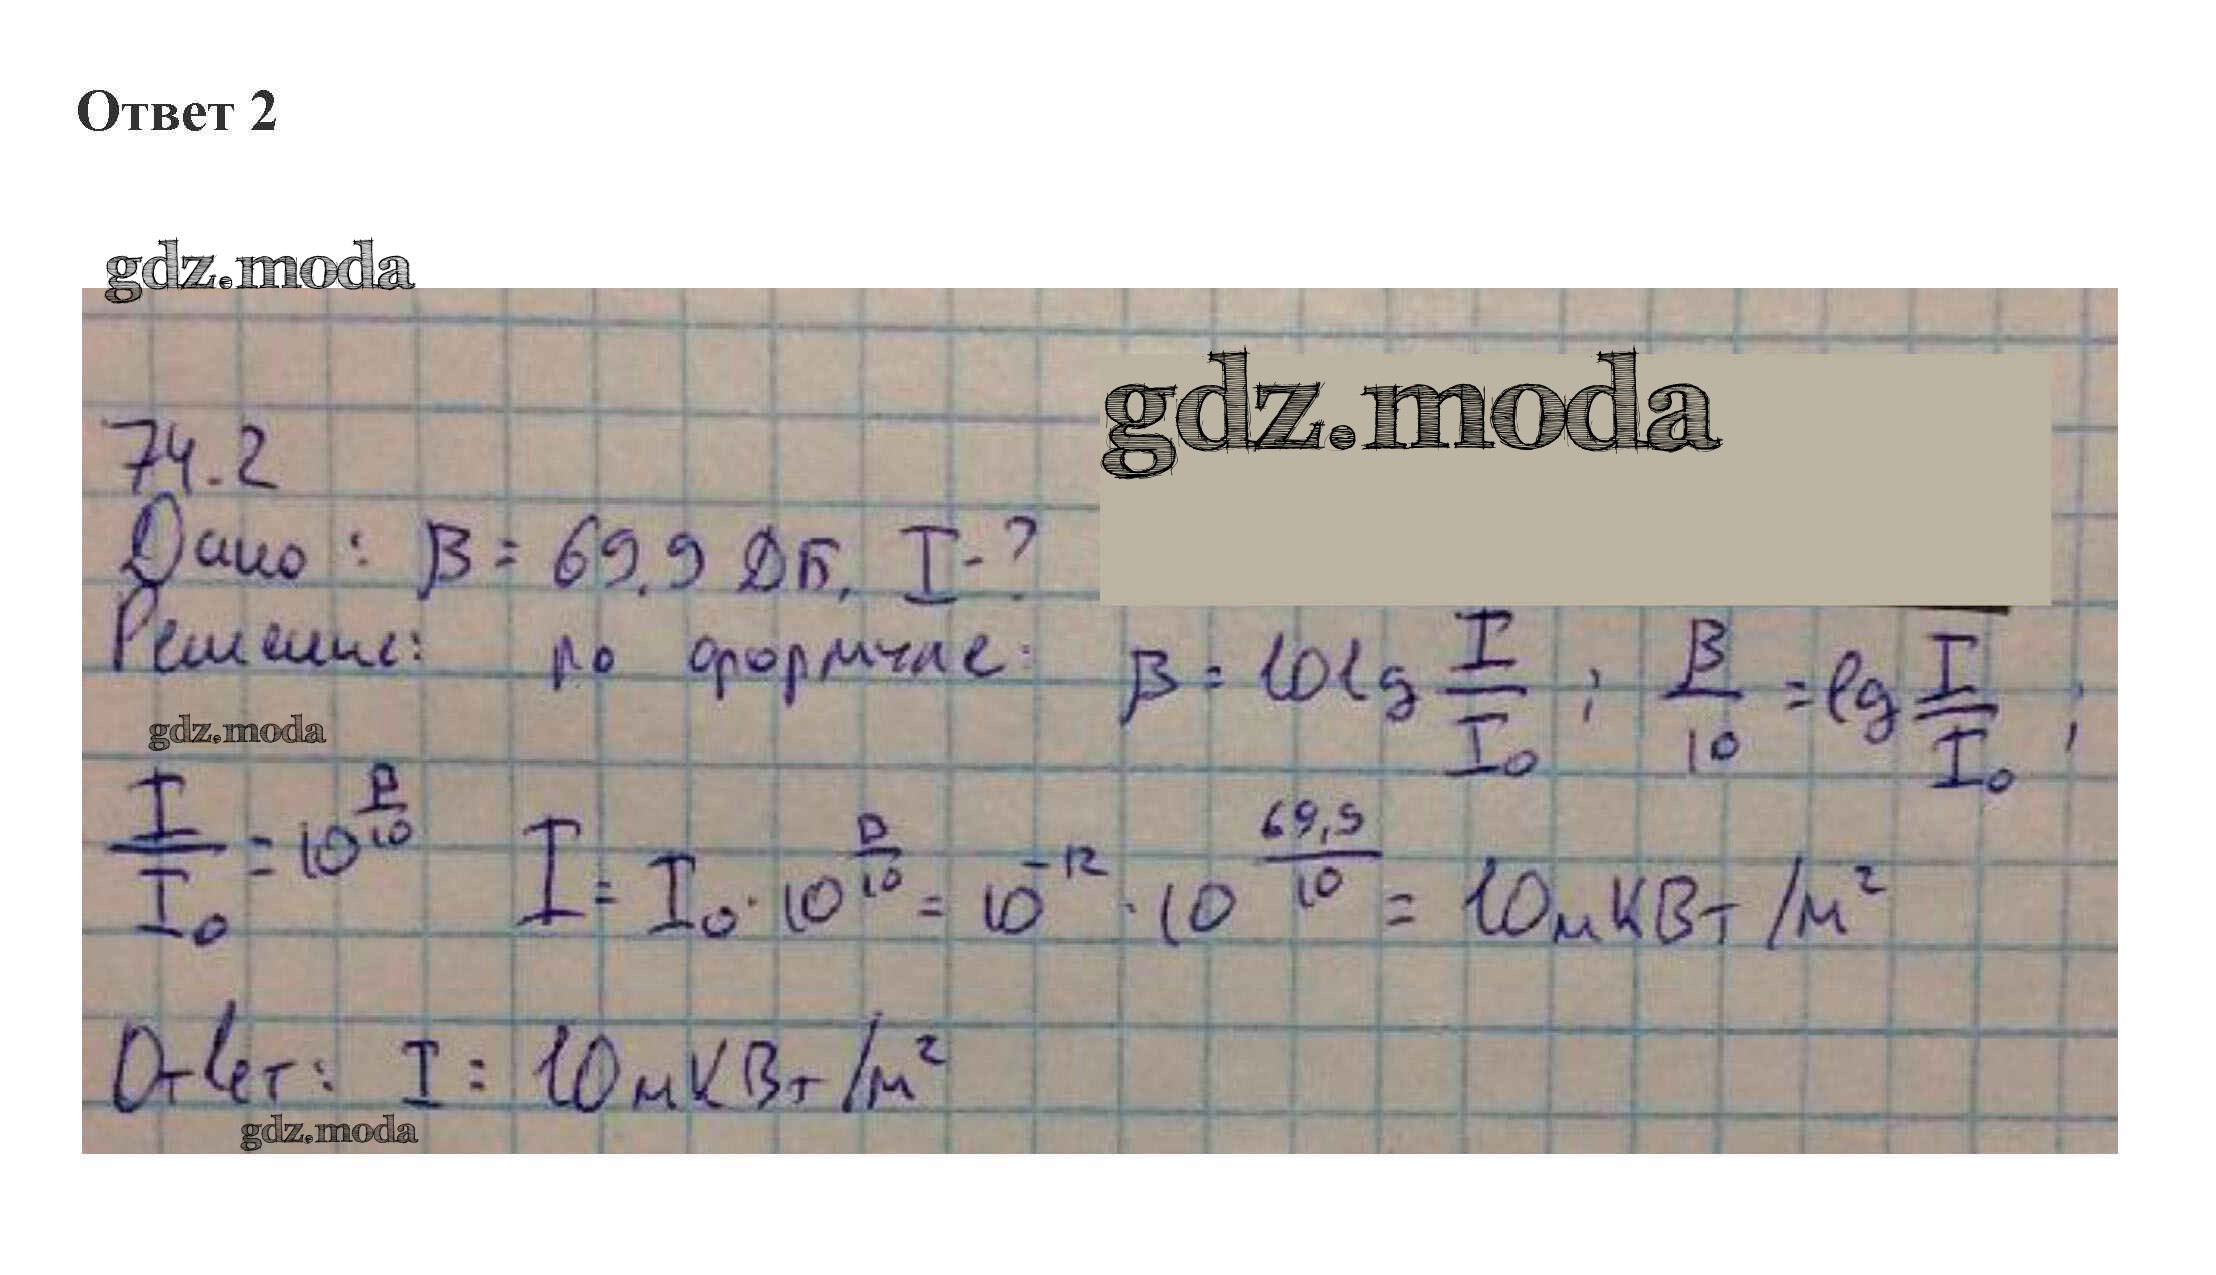 Ответ 2
gdz.moda
gdz.moda
74.2
Дано: β = 69,9 дБ, I-?
Решение: по формуле: β = 10lg I/I₀ ; β/10 = lg I/I₀ ;
gdz.moda
I/I₀ = 10^(β/10) I = I₀ · 10^(β/10) = 10^(-12) · 10^(69,9/10) = 10мкВт/м²
Ответ: I = 10мкВт/м²
gdz.moda